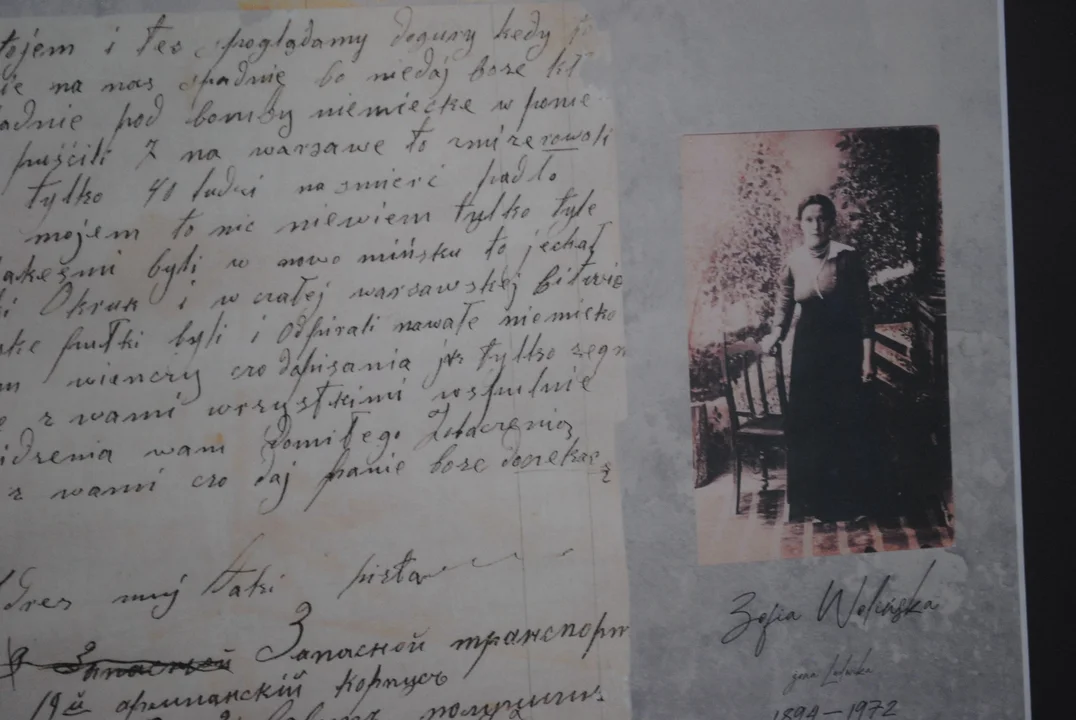 tojem i tes poglądamy dogury kedy
ie na nas spadnie bo niedaj boze
adnie pod bomby niemiecke w ponie
puścili 7 na warsawe to zmizerowali
tylko 40 ludzi na smierć padło
mojem to nic niewiem tylko tyle
akeśmi byli w nowo mińsku to jechał
i Okruk i w całej warsawskej bitwie
ske pułki byli i odpirali nawałe niemiecko
m wienczy czo dopisania jak tylko zegn
ę z wami wrzystkimi wspulnie
idzenia wam domiłego Zobaczenia
z wami czo daj panie boze doczekacz
dres muj taki pista
Запасной Запасной транспорт
19й армианскій Корпусъ
Zofia Wolińska
żona Ludwika
1894-1972